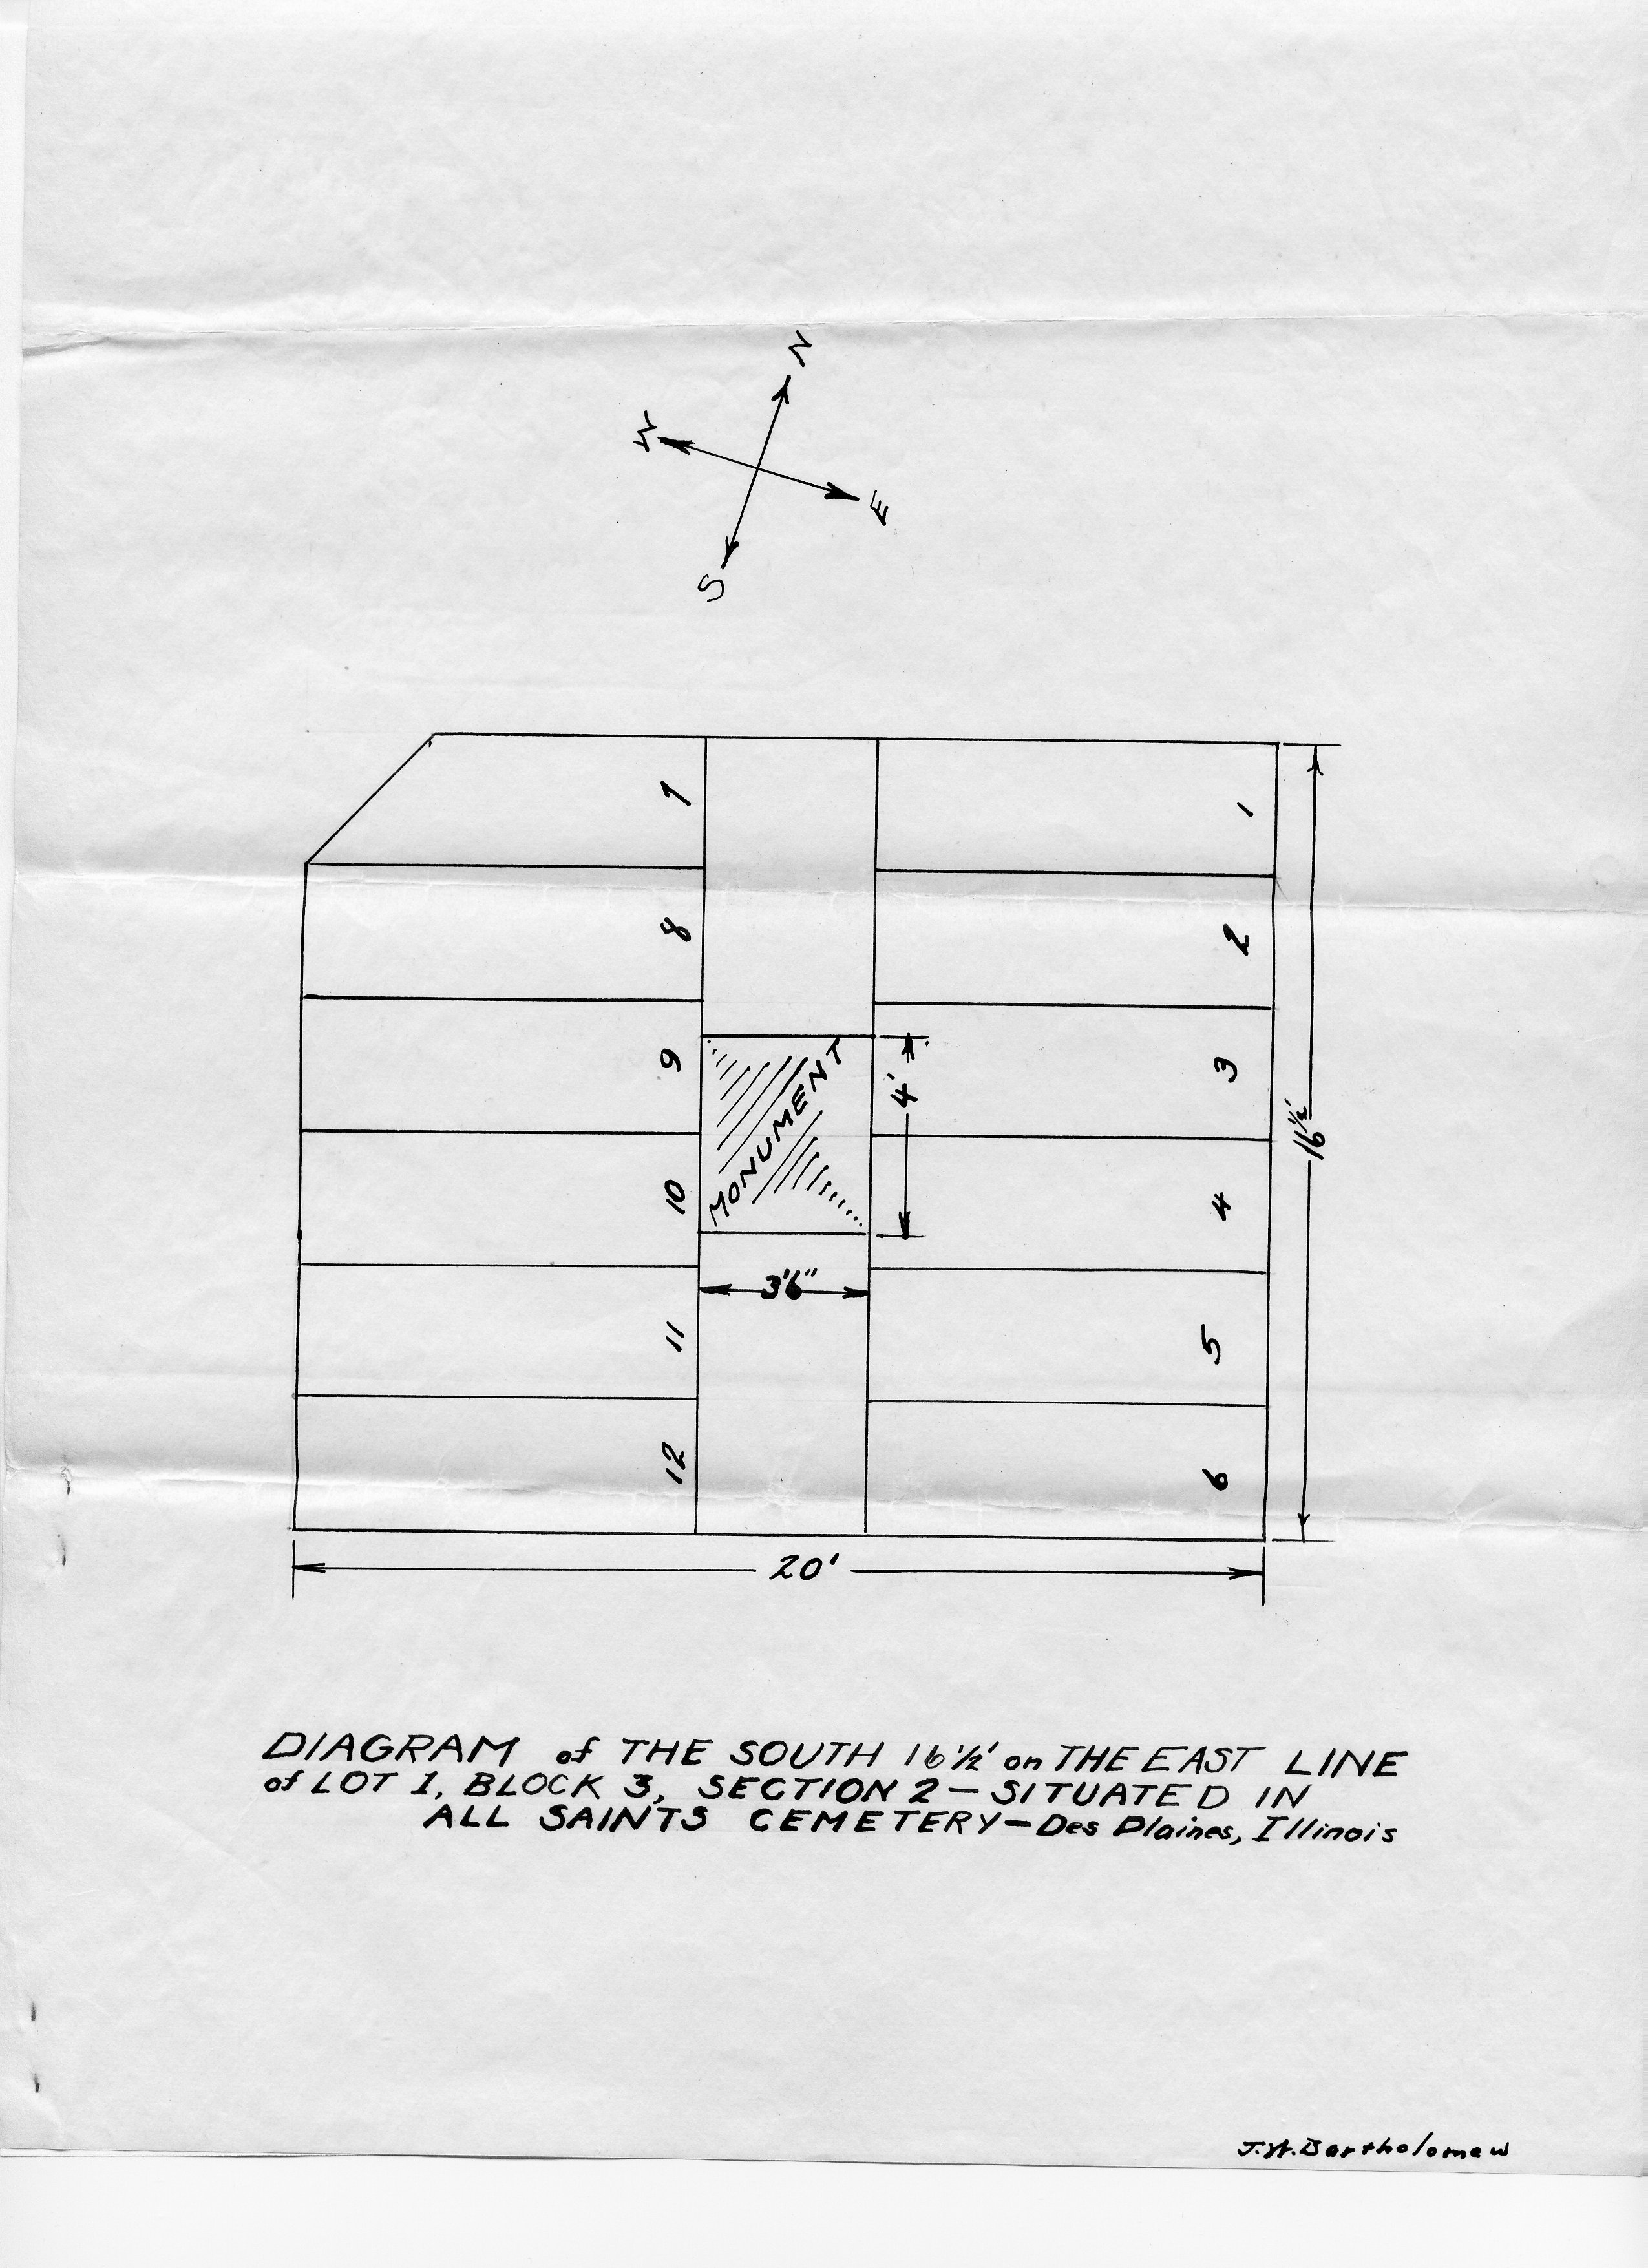 N
W
E
S
7
1
8
2
9
3
MONUMENT
4'
16½'
10
4
3'6"
11
5
12
6
20'
DIAGRAM of THE SOUTH 16½' on THE EAST LINE
of LOT 1, BLOCK 3, SECTION 2 — SITUATED IN
ALL SAINTS CEMETERY — Des Plaines, Illinois
J.W. Bartholomew